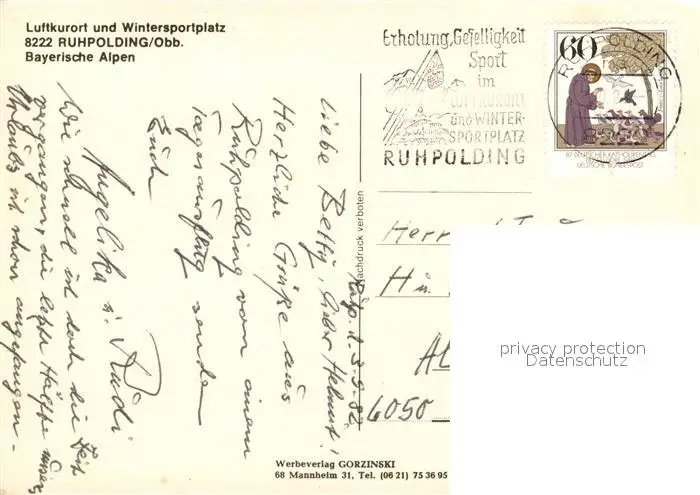 Luftkurort und Wintersportplatz
8222 RUHPOLDING/Obb.
Bayerische Alpen
Erholung, Geselligkeit
Sport
im
LUFTKURORT
und WINTER-
SPORTPLATZ
RUHPOLDING
60
RUHPOLDING
87. DEUTSCHER KATHOLIKENTAG
DEUTSCHE BUNDESPOST
Ruhp. d. 3.9.82
Liebe Betty, lieber Helmut!
Herzliche Grüße aus
Ruhpolding von einem
Tagesausflug senden
Euch
Angelika u. Rudi
Wie schnell ist doch die Zeit
vergangen, die letzte Hälfte unseres
Urlaubs ist schon angefangen.
Nachdruck verboten
Herrn
6050
privacy protection
Datenschutz
Werbeverlag GORZINSKI
68 Mannheim 31, Tel. (06 21) 75 36 95